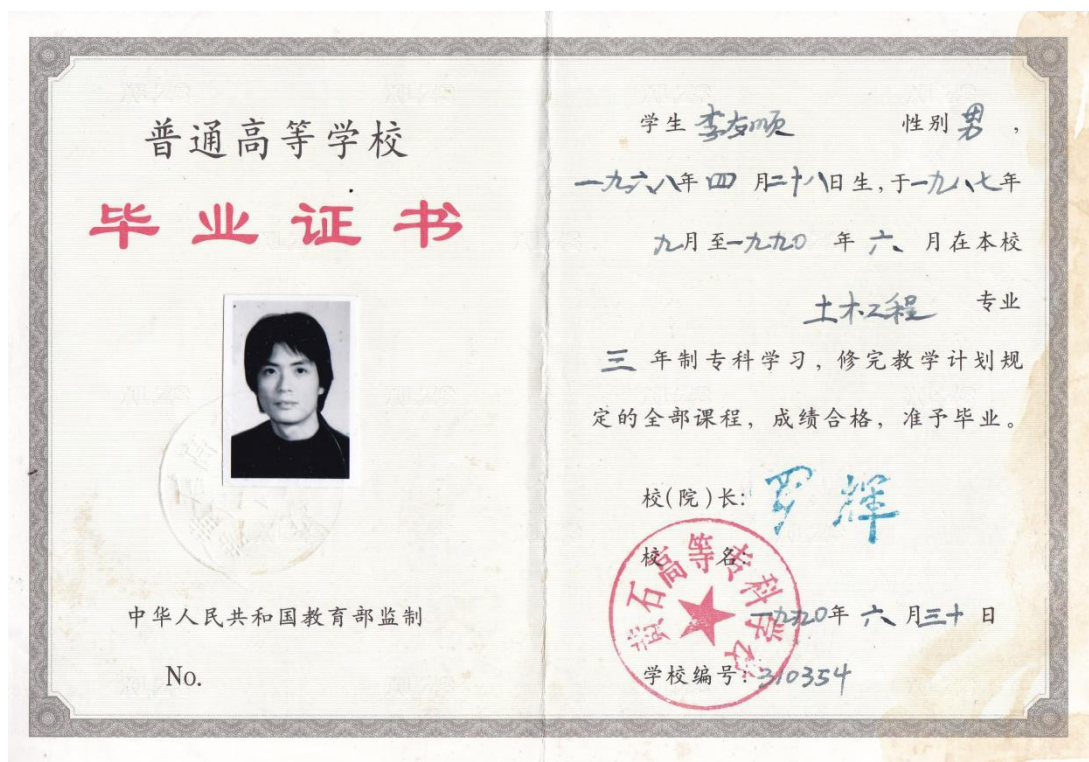 普通高等学校
毕业证书
中华人民共和国教育部监制
No.
学生 李友顺 性别 男,
一九六八年四月二十八日生,于一九八七年
九月至一九九〇年六月在本校
土木工程 专业
三年制专科学习,修完教学计划规
定的全部课程,成绩合格,准予毕业。
校(院)长: 罗辉
校名:
黄石高等专科学校
一九九〇年六月三十日
学校编号:310354